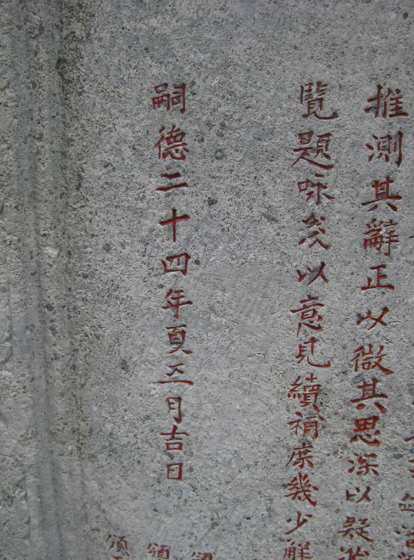 推測其辭正以微其思深以疑
覽題咏矣以意見續補庶幾少鮮
嗣德二十四年夏五月吉日